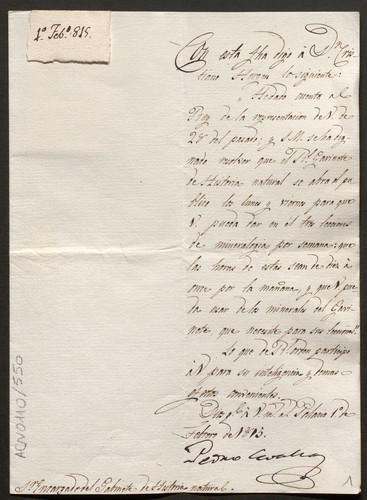 1º Febº 815.
Con esta fha digo à Dn Cris
tiano Herrgen lo siguiente:
"He dado cuenta al
Rey de la representacion de V. de
28 del pasado; y S.M. se ha dig
nado resolver que el Rl Gavinete
de Historia natural se abra al pu
blico los lunes y viernes para que
V. pueda dar en él tres lecciones
de mineralogía por semana: que
las horas de estas sean de diez à
once por la mañana, y que V. pue
da usar de los minerales del Gavi
nete que necesite para sus lecciones."
Lo que de Rl orden participo
à V. para su inteligencia y
efectos convenientes.
Dios gue à V. ms. as. Palacio 1º de
Febrero de 1815.
Pedro Cevallos
Sr Encargado del Gabinete de Historia natural.
1
ACN0110/550